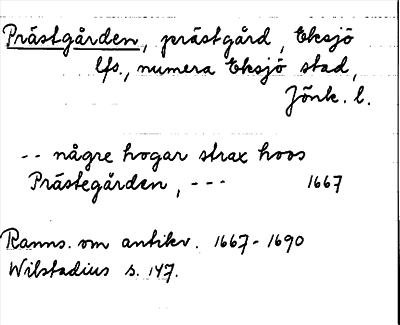 Prästgården, prästgård, Eksjö
lfs., numera Eksjö stad,
Jönk. l.
-- någre hogar strax hoos
Prästegården, --- 1667
Ranns. om antikv. 1667-1690
Wilstadius s. 147.